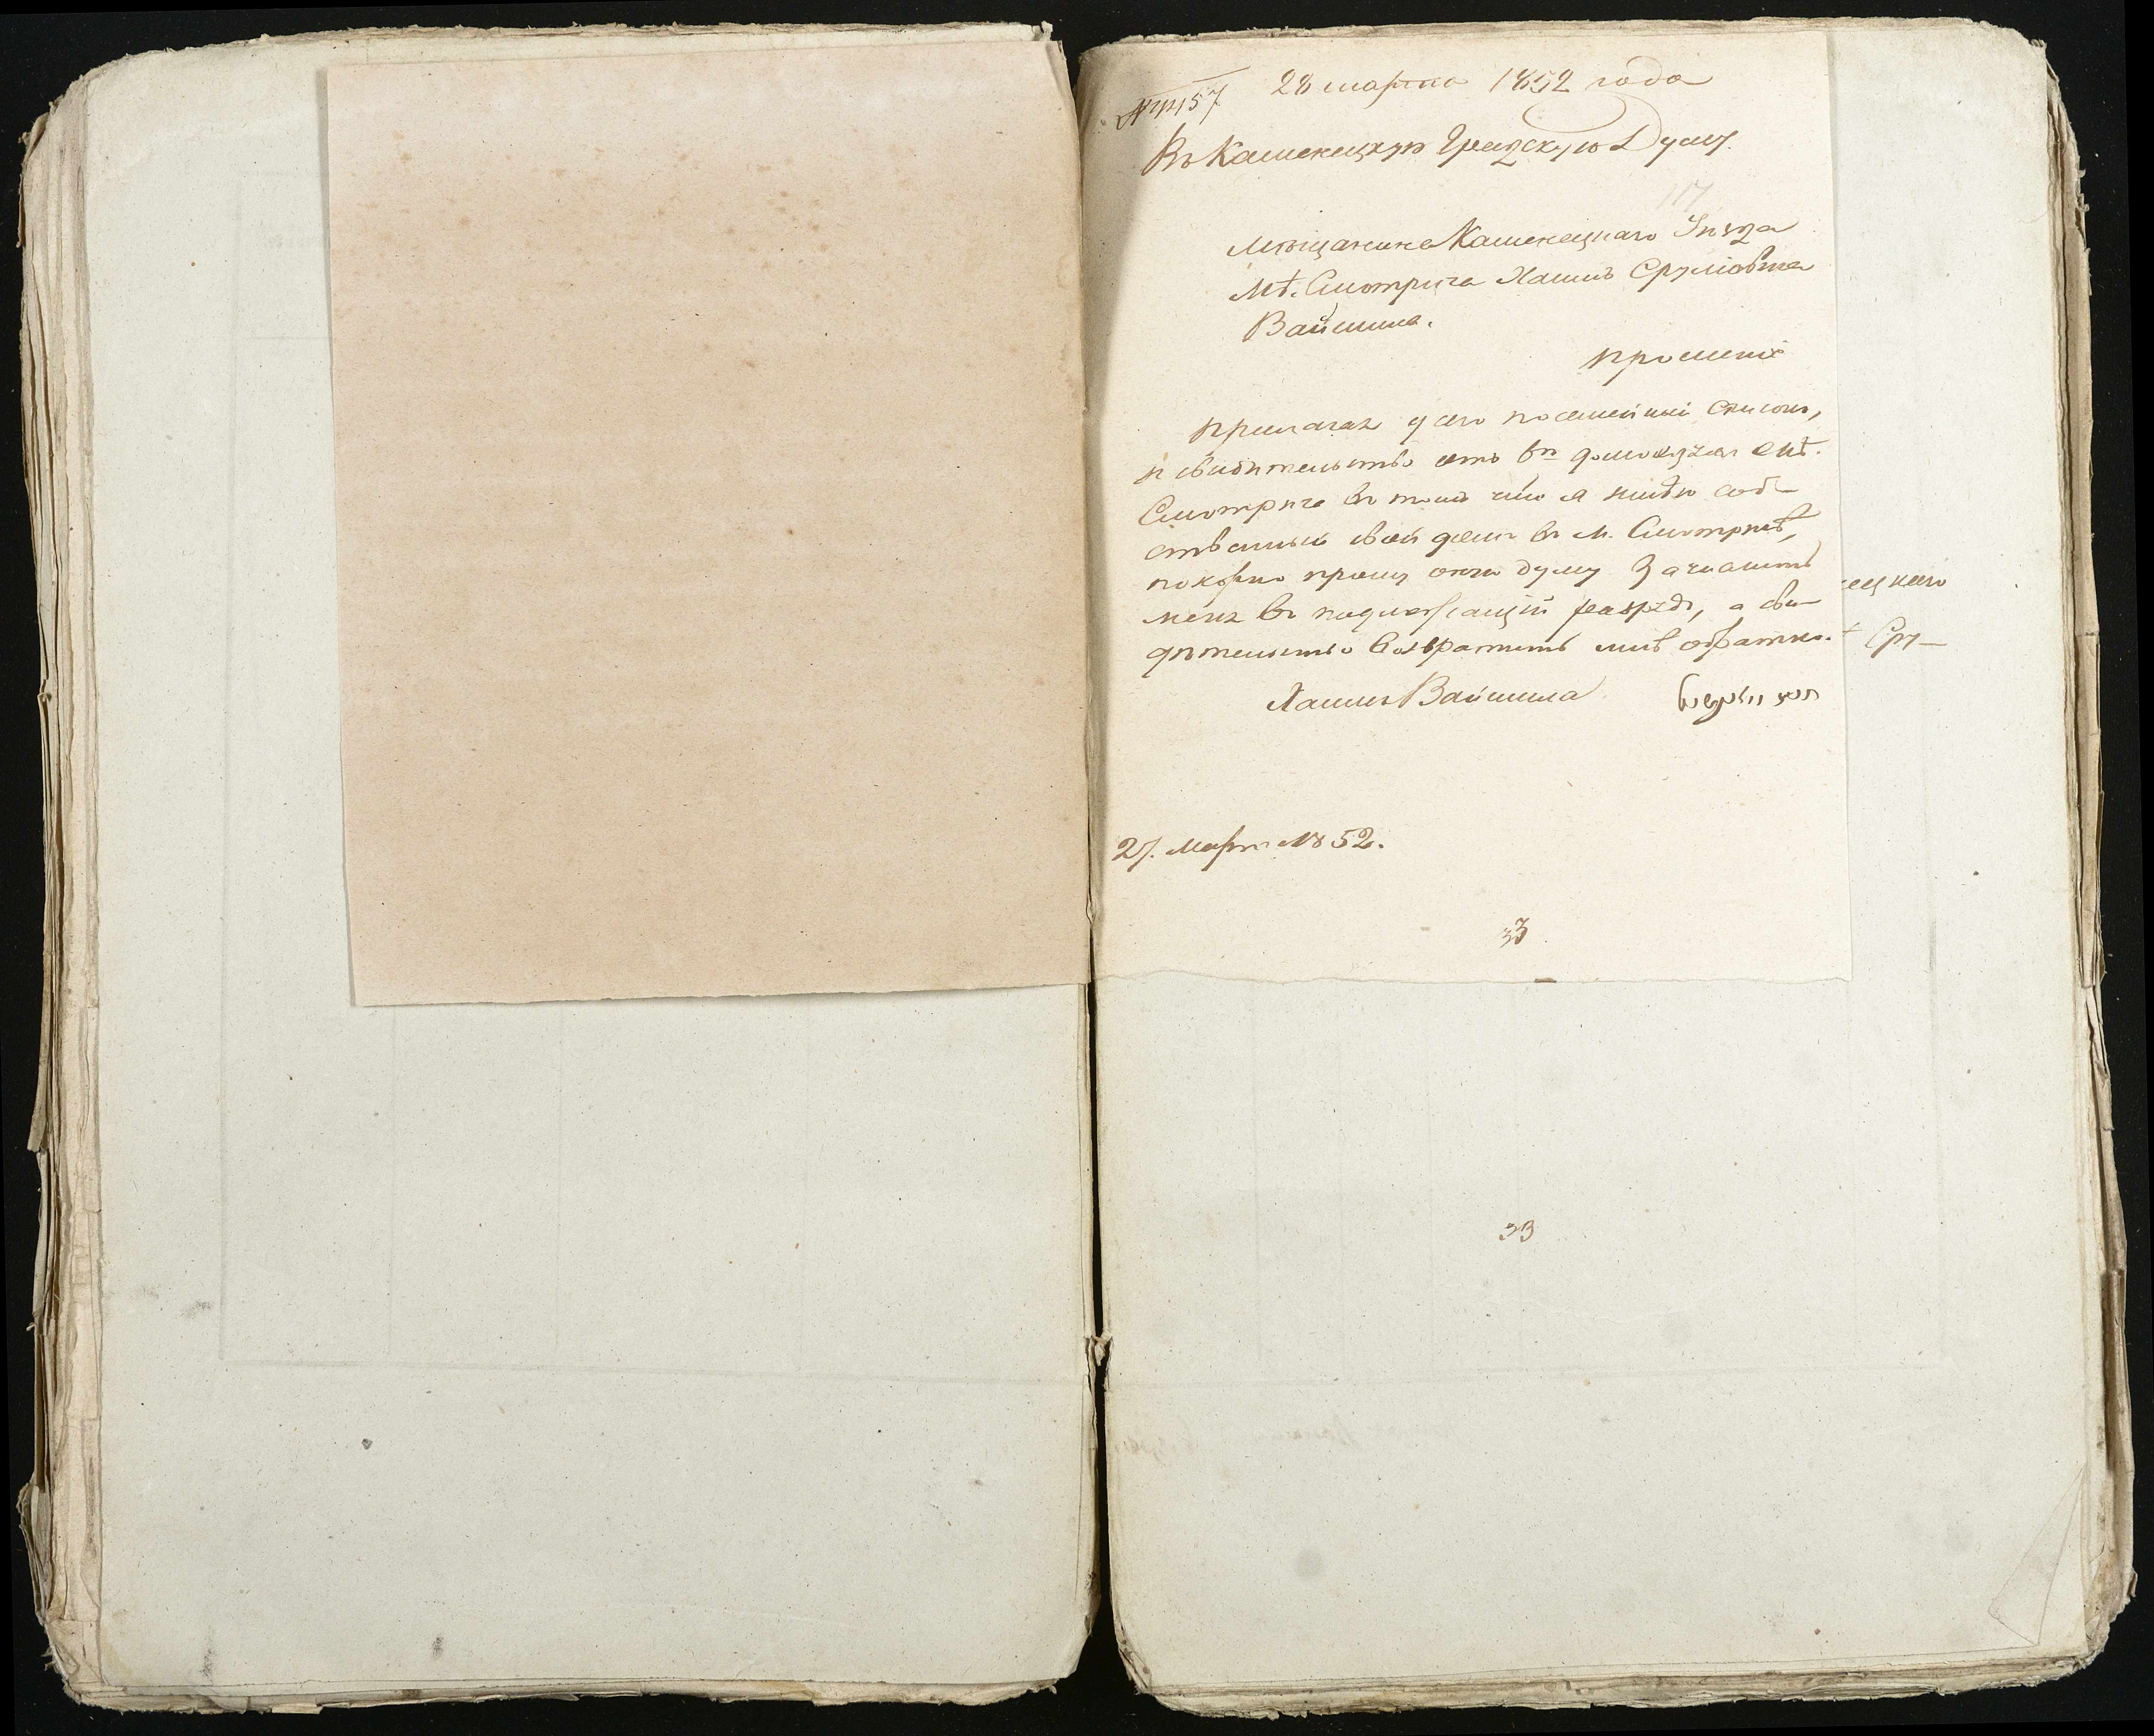 28 марта 1852 года
Въ Каменецкую Градскую Думу.
117
Мѣщанина Каменецкаго Уѣзда
Мѣ. Смотрича Хаима Сруліовича
Вайсмана.
прошеніе
прилагая у сего посемейный списокъ,
и свидѣтельство отъ домохозяевъ мѣ.
Смотрича въ томъ что я имѣю соб-
ственный свой домъ въ м. Смотричѣ,
покорно прошу оную думу Зачислить
меня въ надлежащій разрядъ, а сви-
дѣтельство возвратить мнѣ обратно.
Хаимъ Вайсмана
27. Марта 1852.
33
ецкаго
Сру-
33